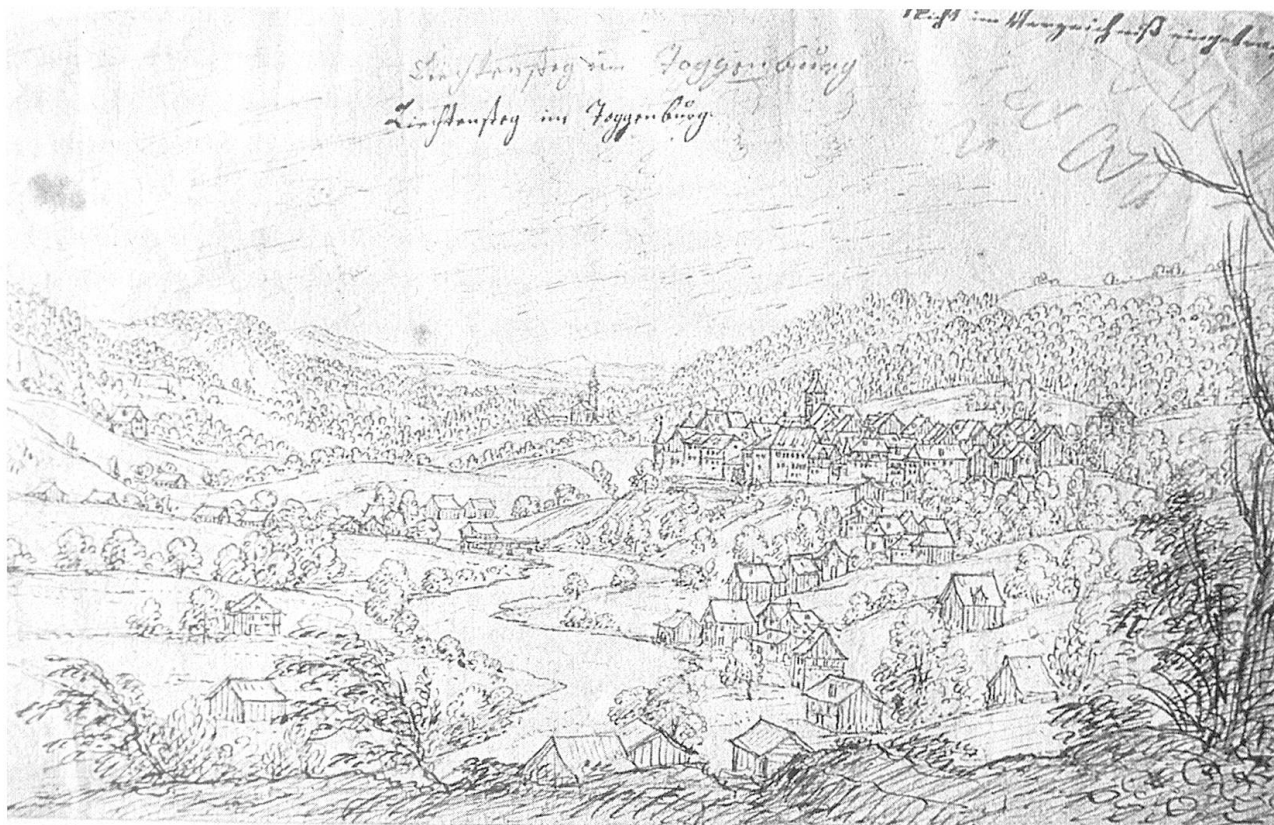 Nicht im Verzeichniß
Liechtensteg im Toggenburg
Liechtensteg im Toggenburg.